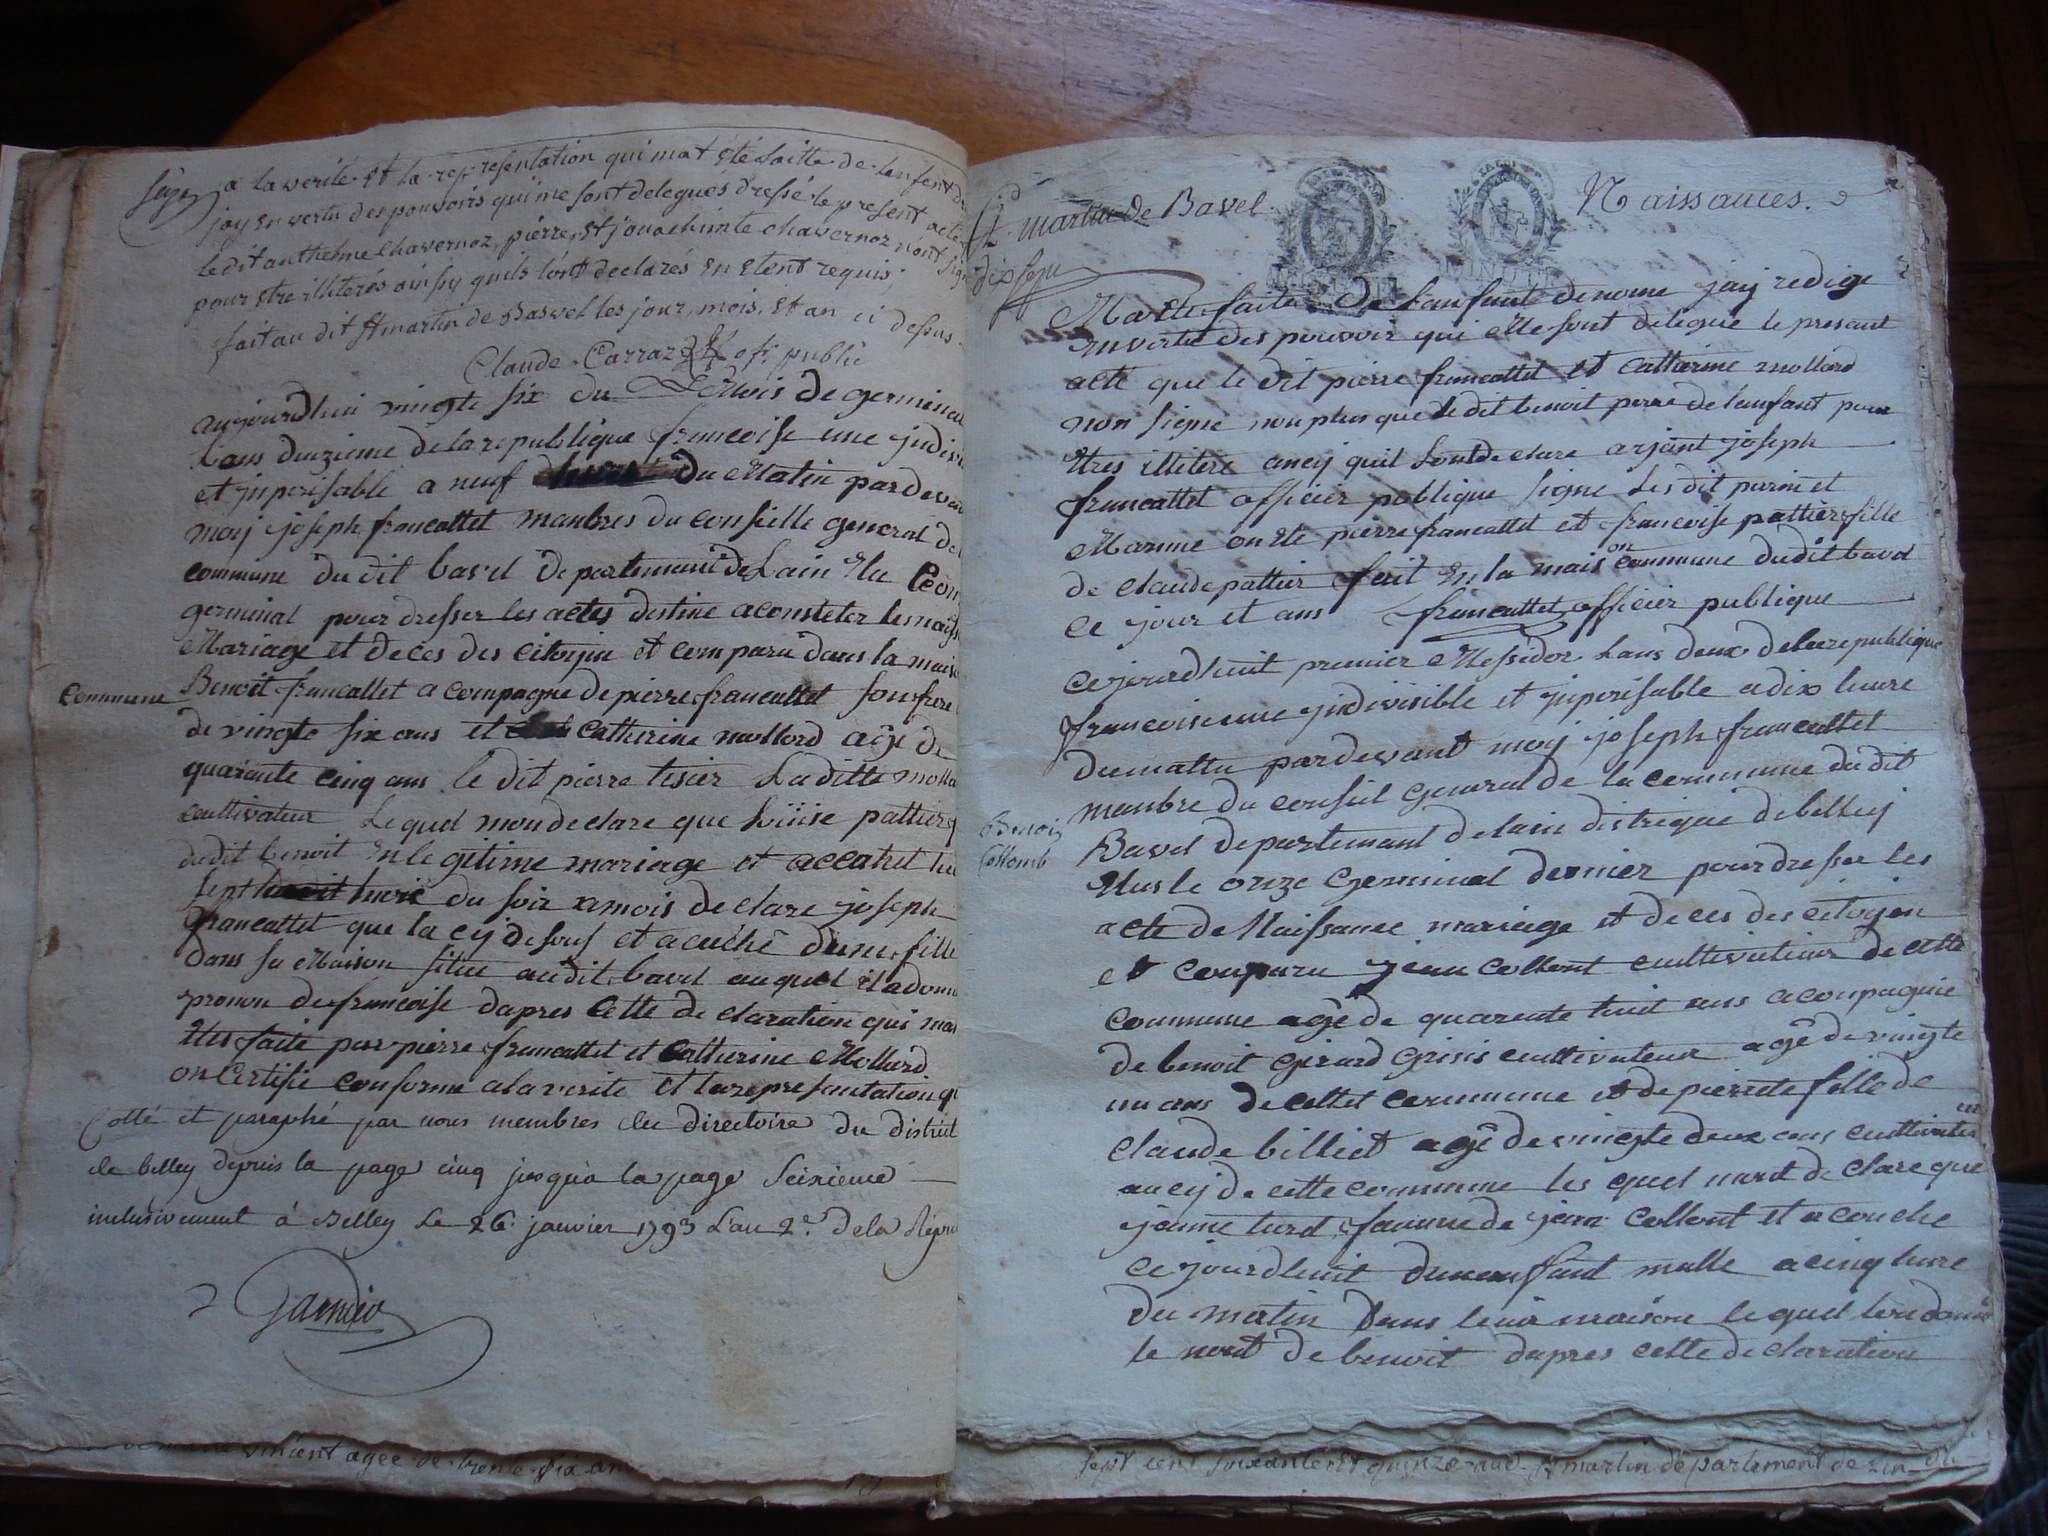 seize
a la verité et la representation qui mat été faitte de lenfent
jay En vertu des pouvoirs qui me sont delegués dressé le present acte
le dit anthelme chavernoz, pierre, et jouachimte chavernoz n'ont sign
pour etre illiterés ainsy quils lont declarés En etent requis,
fait au dit St martin de Basvel les jour, mois, et an ci dessus
Claude Carraz of. public
aujourdhui vingte six du mois de germinal
Lans deuxieme de la republique francoise une judivi
et jnperisable a neuf du Matin par devan
moy joseph francattet manbres du consielle general de
commune du dit bavel departemant de Lain Elu Leon
germinal pour dresser les actes destine a consteter les naiss
Mariage et deces des citoyin et comparu dans la maison
commune
Benoit francattet a compagne de pierre francattet son frere
de vingte six ans et catherine mollard age de
quarante cinq ans le dit pierre tisier Laditte molla
cultivateur Le quel mon declare que Luiise pattier
du dit benoit En legitime mariage et accatret
sept du soir declare joseph
francattet que la cy desous et acuché dune fille
dans sa Maison situe audit bavel au quel il a donne
pronon de francoise dapres cette de claration qui ma
Etes faite par pierre francattet et Catherine Mollard
on certifie conforme ala verite et la representation q
Cotté et paraphé par nous membres du directoire du district
de belley depuis la page cinq jusqu'a la page Seixieme
inclusivement a Belley Le 26 janvier 1793 L'an 2e de la Répu
Garndio
vincent agée de trente six ans
St martin de Bavel
Naissances.
dix sept
Matte faite de Lanfant denome jay redige
En vertu des pouvoir qui Me sont delegue le presant
acte que le dit pierre francattet et catherine mollard
non signe non plus que le dit benoit perre de l'anfant pour
Etres illetere ancy quil Lont declare arjant joseph
francattet officier poblique signe Les dit parin et
Marinne on ete pierre francattet et francoise pattier fille
de claude pattier ferit En la maison commune dudit bavel
ce jour et ans francattet officier publique
Cejourdhuit premier Messidor Lans deux dela republique
francoise une jndivisible et jnperisable a dix heure
dumattin pardevant moy joseph francattet
manbre du conseil general de la commune du dit
Benoi
Collomb
Bavel departemant delain districque de belley
Elus le onze Germinal dernier pour dresser les
acte de Naissance mariage et deces des citoyin
et conparu jean collont cultivateur de cette
commune agé de quarente huit ans aconpagnie
de benoit Girard Grisis cultivateur agé de vingte
un ans de cettet commune et de pierrete fille de
claude billiet agé de vingte deux ans cultivateur
ancy de cette commune les quel mont declare que
janne turel famme de jean collont et a couche
ce jourdhuit dun anffant malle a cinq heure
du matin dans leur maison le quel lon donne
le nont de benoit dapres cette declaration
sept cent soixante et quinze St martin département de Lin